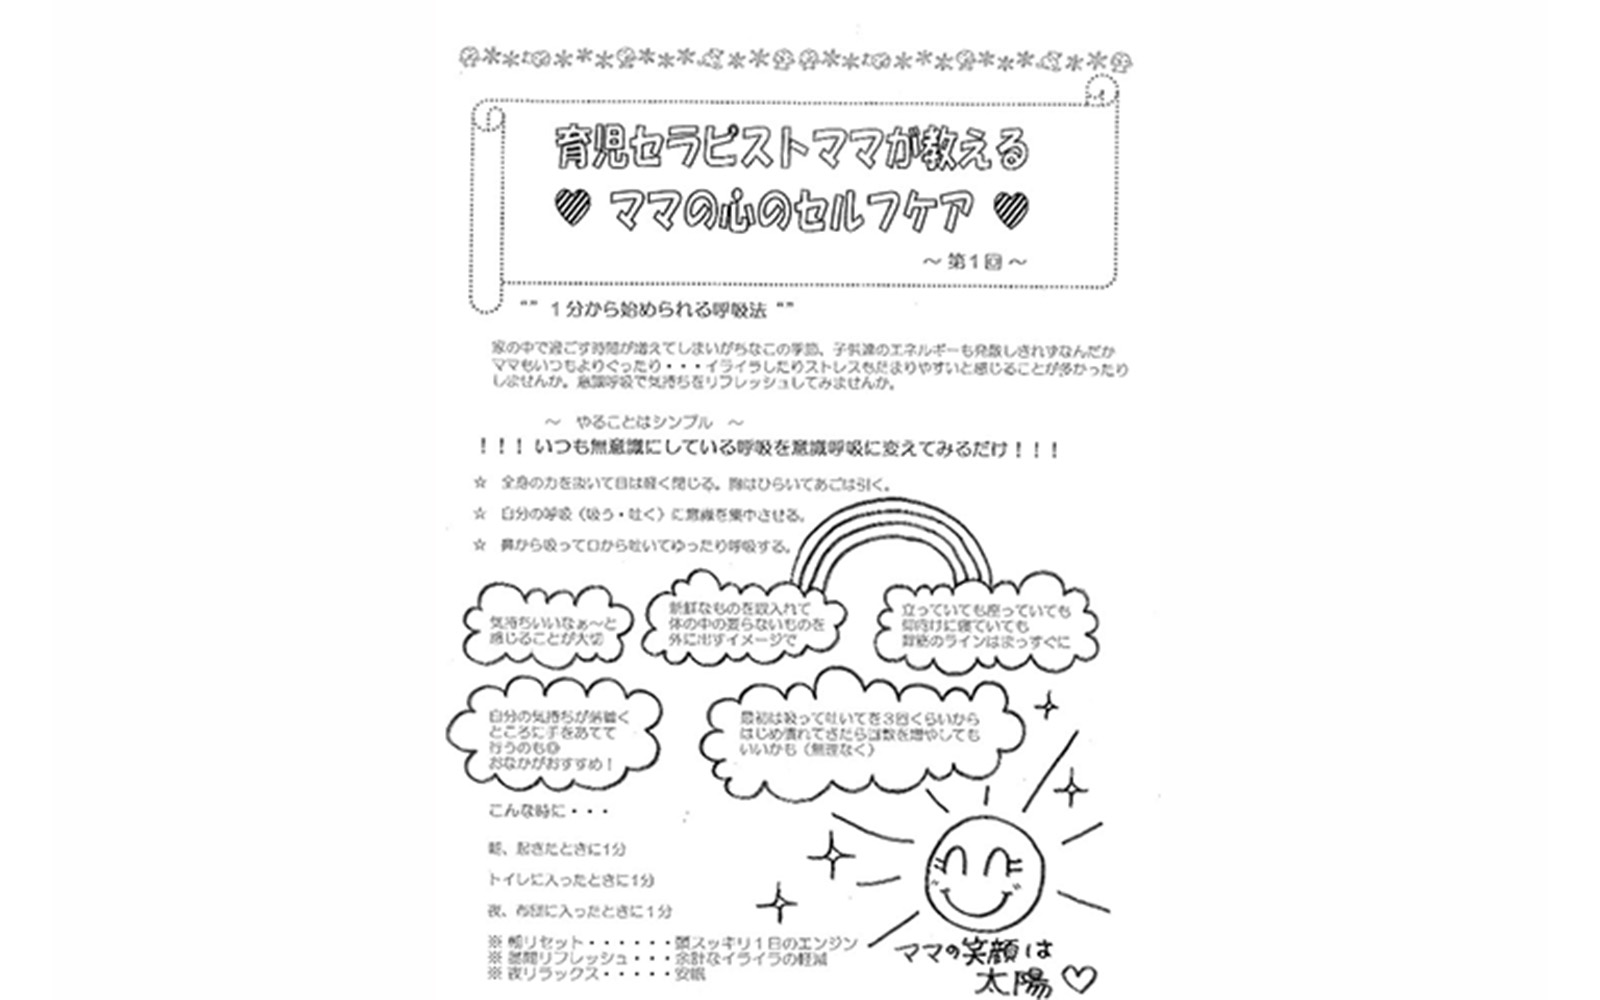 育児セラピストママが教える
♥ ママの心のセルフケア ♥
～ 第１回 ～
“” １分から始められる呼吸法 “”
家の中で過ごす時間が増えてしまいがちなこの季節、子供達のエネルギーも発散しきれずなんだか
ママもいつもよりぐったり・・・イライラしたりストレスもたまりやすいと感じることが多かったり
しませんか。意識呼吸で気持ちをリフレッシュしてみませんか。
～ やることはシンプル ～
！！！いつも無意識にしている呼吸を意識呼吸に変えてみるだけ！！！
☆ 全身の力を抜いて目は軽く閉じる。胸はひらいてあごは引く。
☆ 自分の呼吸（吸う・吐く）に意識を集中させる。
☆ 鼻から吸って口から吐いてゆったり呼吸する。
気持ちいいなぁ～と
感じることが大切
新鮮なものを取入れて
体の中の要らないものを
外に出すイメージで
立っていても座っていても
仰向けに寝ていても
背筋のラインはまっすぐに
自分の気持ちが落着く
ところに手をあてて
行うのも◎
おなかがおすすめ！
最初は吸って吐いてを３回くらいから
はじめ慣れてきたら回数を増やしても
いいかも（無理なく）
こんな時に・・・
朝、起きたときに1分
トイレに入ったときに1分
夜、布団に入ったときに１分
※ 朝リセット・・・・・・頭スッキリ１日のエンジン
※ 昼間リフレッシュ・・・余計なイライラの軽減
※ 夜リラックス・・・・・安眠
ママの笑顔は
太陽♡